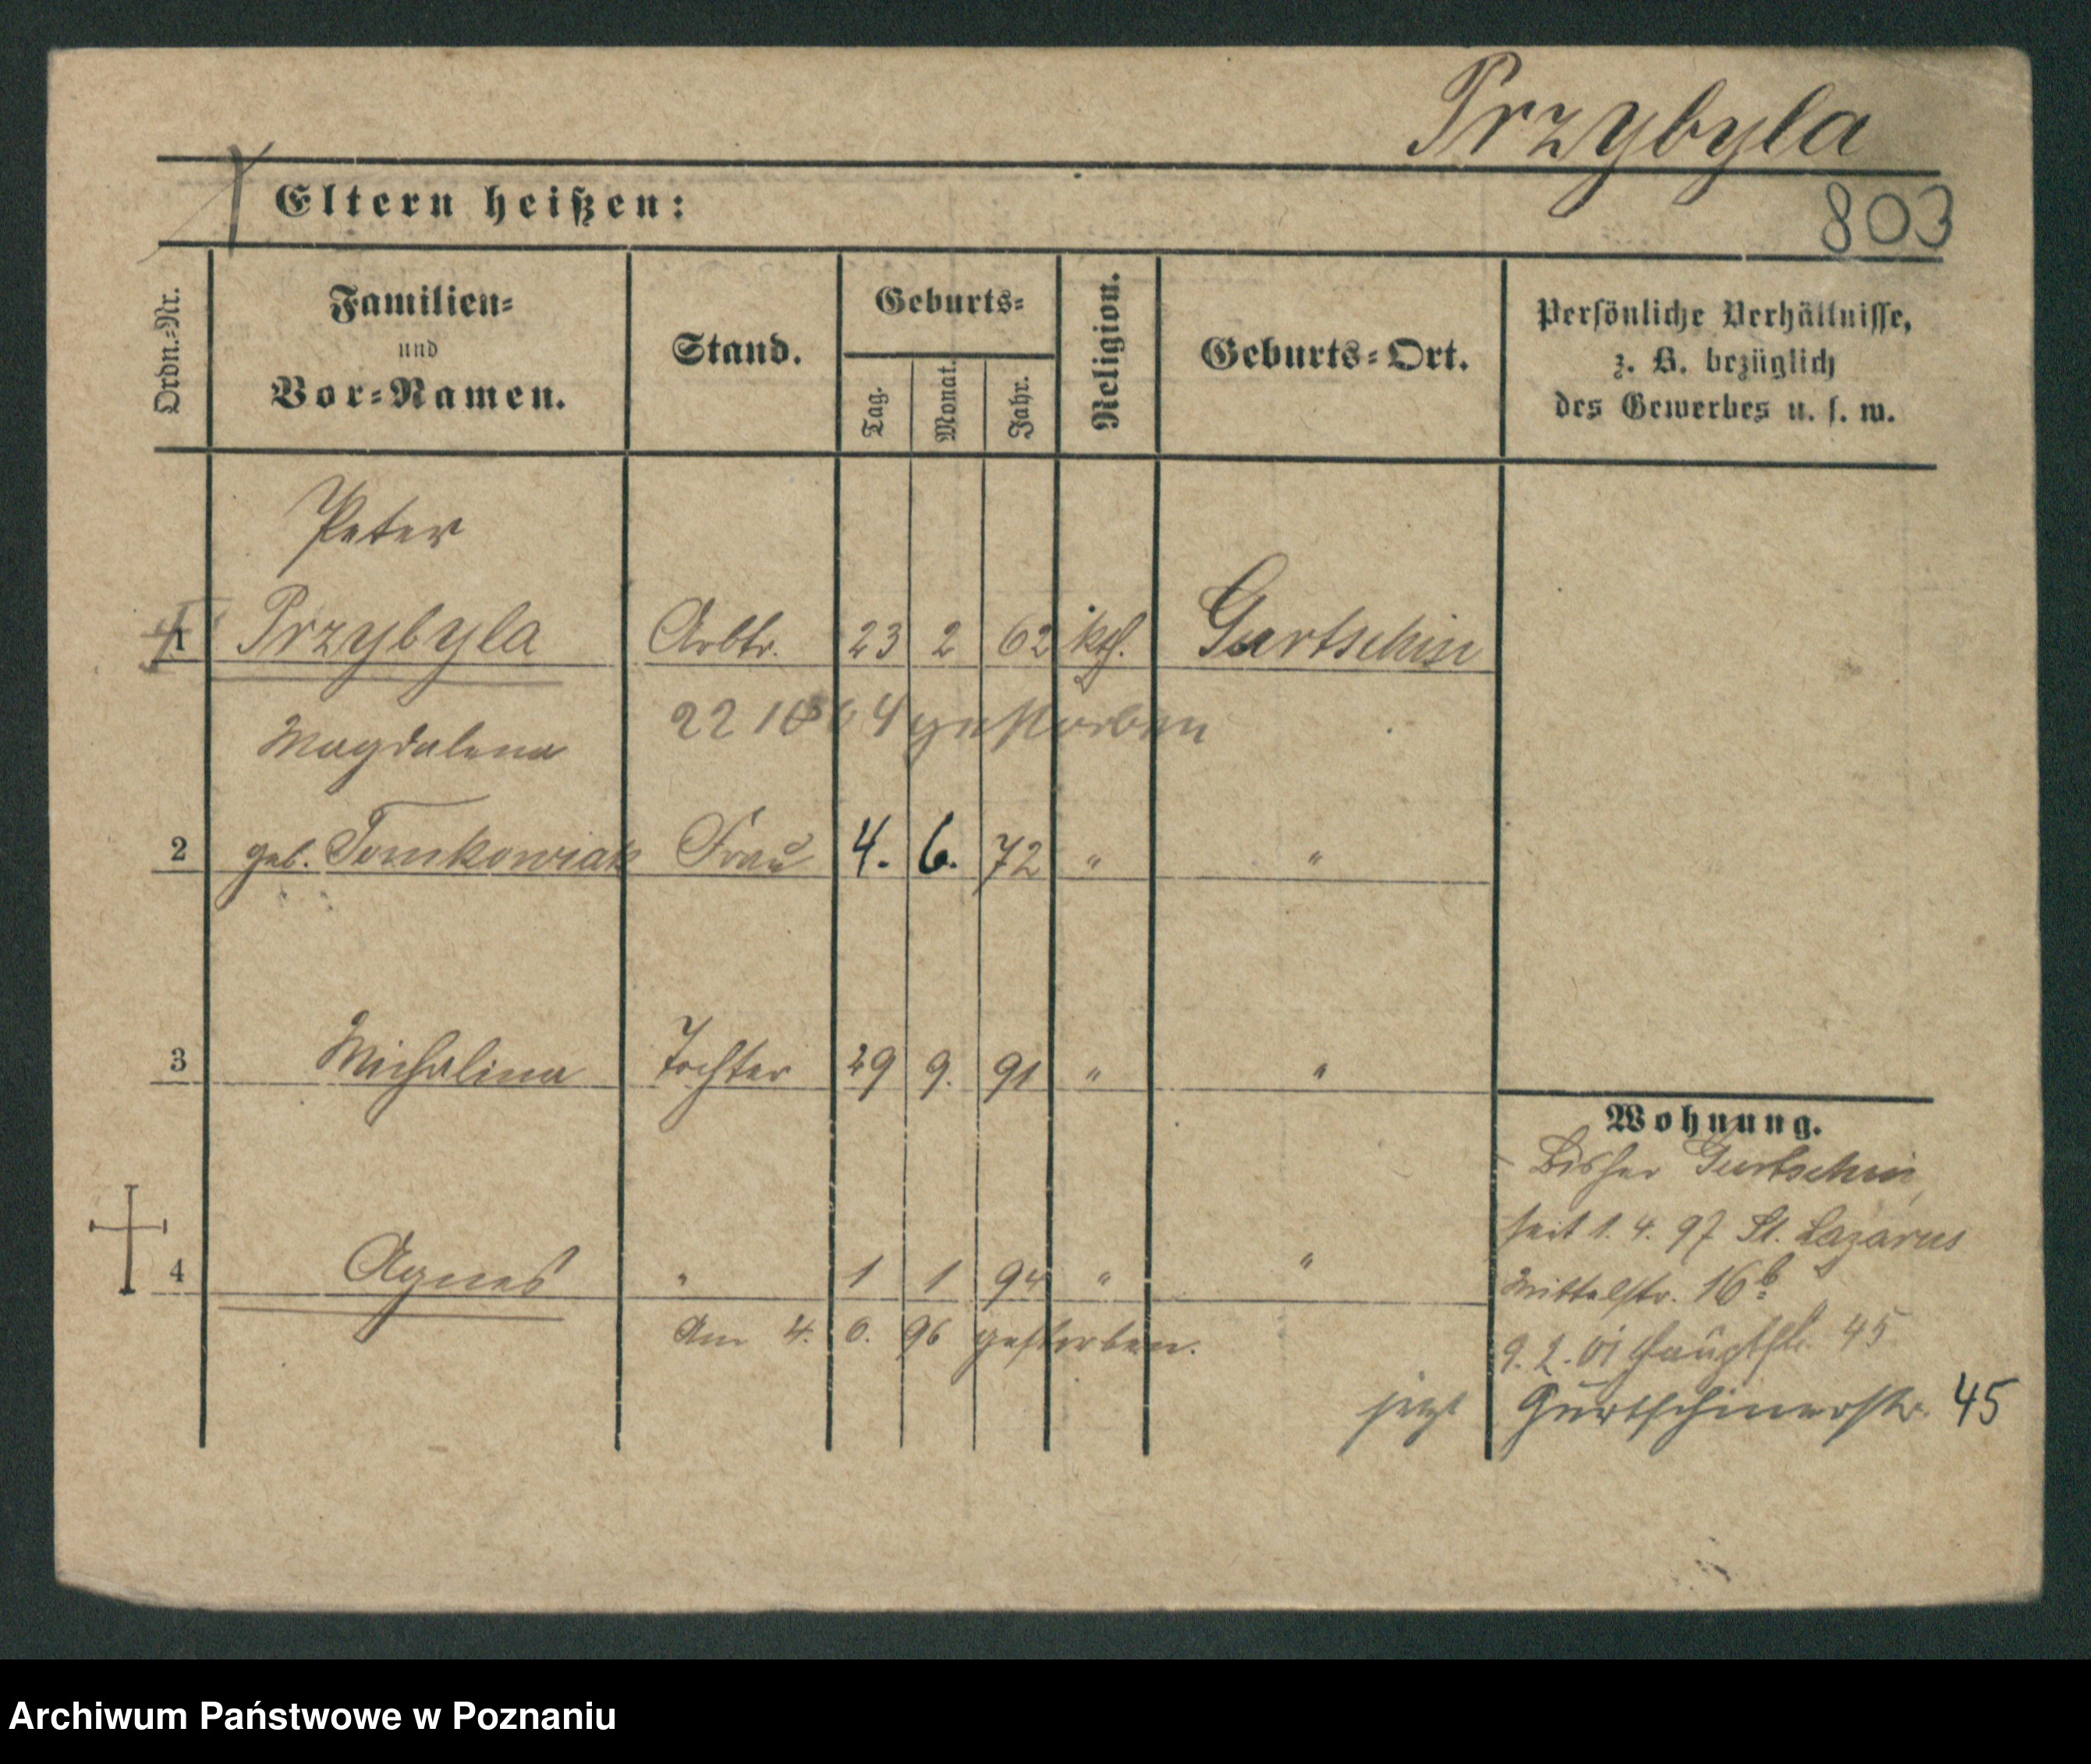 Przybyla
803
Eltern heißen:
Ordn.=Nr.
Familien=
und
Vor=Namen.
Stand.
Geburts=
Tag.
Monat.
Jahr.
Religion.
Geburts=Ort.
Persönliche Verhältnisse,
z. B. bezüglich
des Gewerbes u. s. w.
Peter
1 Przybyla Arbtr. 23 2 62 kth. Gurtschin
22 10 04 gestorben
Magdalena
2 geb. Tomkowiak Frau 4. 6. 72 " "
3 Michalina Tochter 29 9. 91 " "
4 Agnes " 1 1 94 " "
Am 4. 6. 96 gestorben.
Wohnung.
Bisher Gurtschin,
seit 1. 4. 97 St. Lazarus
Mittelstr. 16b
9. 2. 01 Hauptstr. 45
jetzt Gurtschinerstr. 45
Archiwum Państwowe w Poznaniu